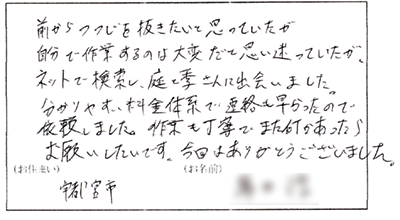 前からつつじを抜きたいと思っていたが
自分で作業するのは大変だと思い迷っていたが、
ネットで検索し、庭と季さんに出会いました。
分かりやすい料金体系で連絡も早かったので
依頼しました。作業も丁寧でまた何かあったら
お願いしたいです。今回はありがとうございました。
(お住まい) (お名前)
宇都宮市